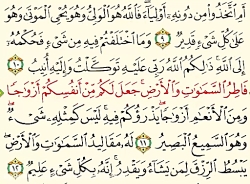 أَمِ ٱتَّخَذُوا۟ مِن دُونِهِۦٓ أَوْلِيَآءَ ۖ فَٱللَّهُ هُوَ ٱلْوَلِىُّ وَهُوَ يُحْىِ ٱلْمَوْتَىٰ وَهُوَ
عَلَىٰ كُلِّ شَىْءٍ قَدِيرٌ ﴿٩﴾ وَمَا ٱخْتَلَفْتُمْ فِيهِ مِن شَىْءٍ فَحُكْمُهُۥٓ
إِلَى ٱللَّهِ ۚ ذَٰلِكُمُ ٱللَّهُ رَبِّى عَلَيْهِ تَوَكَّلْتُ وَإِلَيْهِ أُنِيبُ ﴿١٠﴾
فَاطِرُ ٱلسَّمَٰوَٰتِ وَٱلْأَرْضِ ۚ جَعَلَ لَكُم مِّنْ أَنفُسِكُمْ أَزْوَٰجًا
وَمِنَ ٱلْأَنْعَٰمِ أَزْوَٰجًا ۖ يَذْرَؤُكُمْ فِيهِ ۚ لَيْسَ كَمِثْلِهِۦ شَىْءٌ ۖ
وَهُوَ ٱلسَّمِيعُ ٱلْبَصِيرُ ﴿١١﴾ لَهُۥ مَقَالِيدُ ٱلسَّمَٰوَٰتِ وَٱلْأَرْضِ ۖ
يَبْسُطُ ٱلرِّزْقَ لِمَن يَشَآءُ وَيَقْدِرُ ۚ إِنَّهُۥ بِكُلِّ شَىْءٍ عَلِيمٌ ﴿١٢﴾